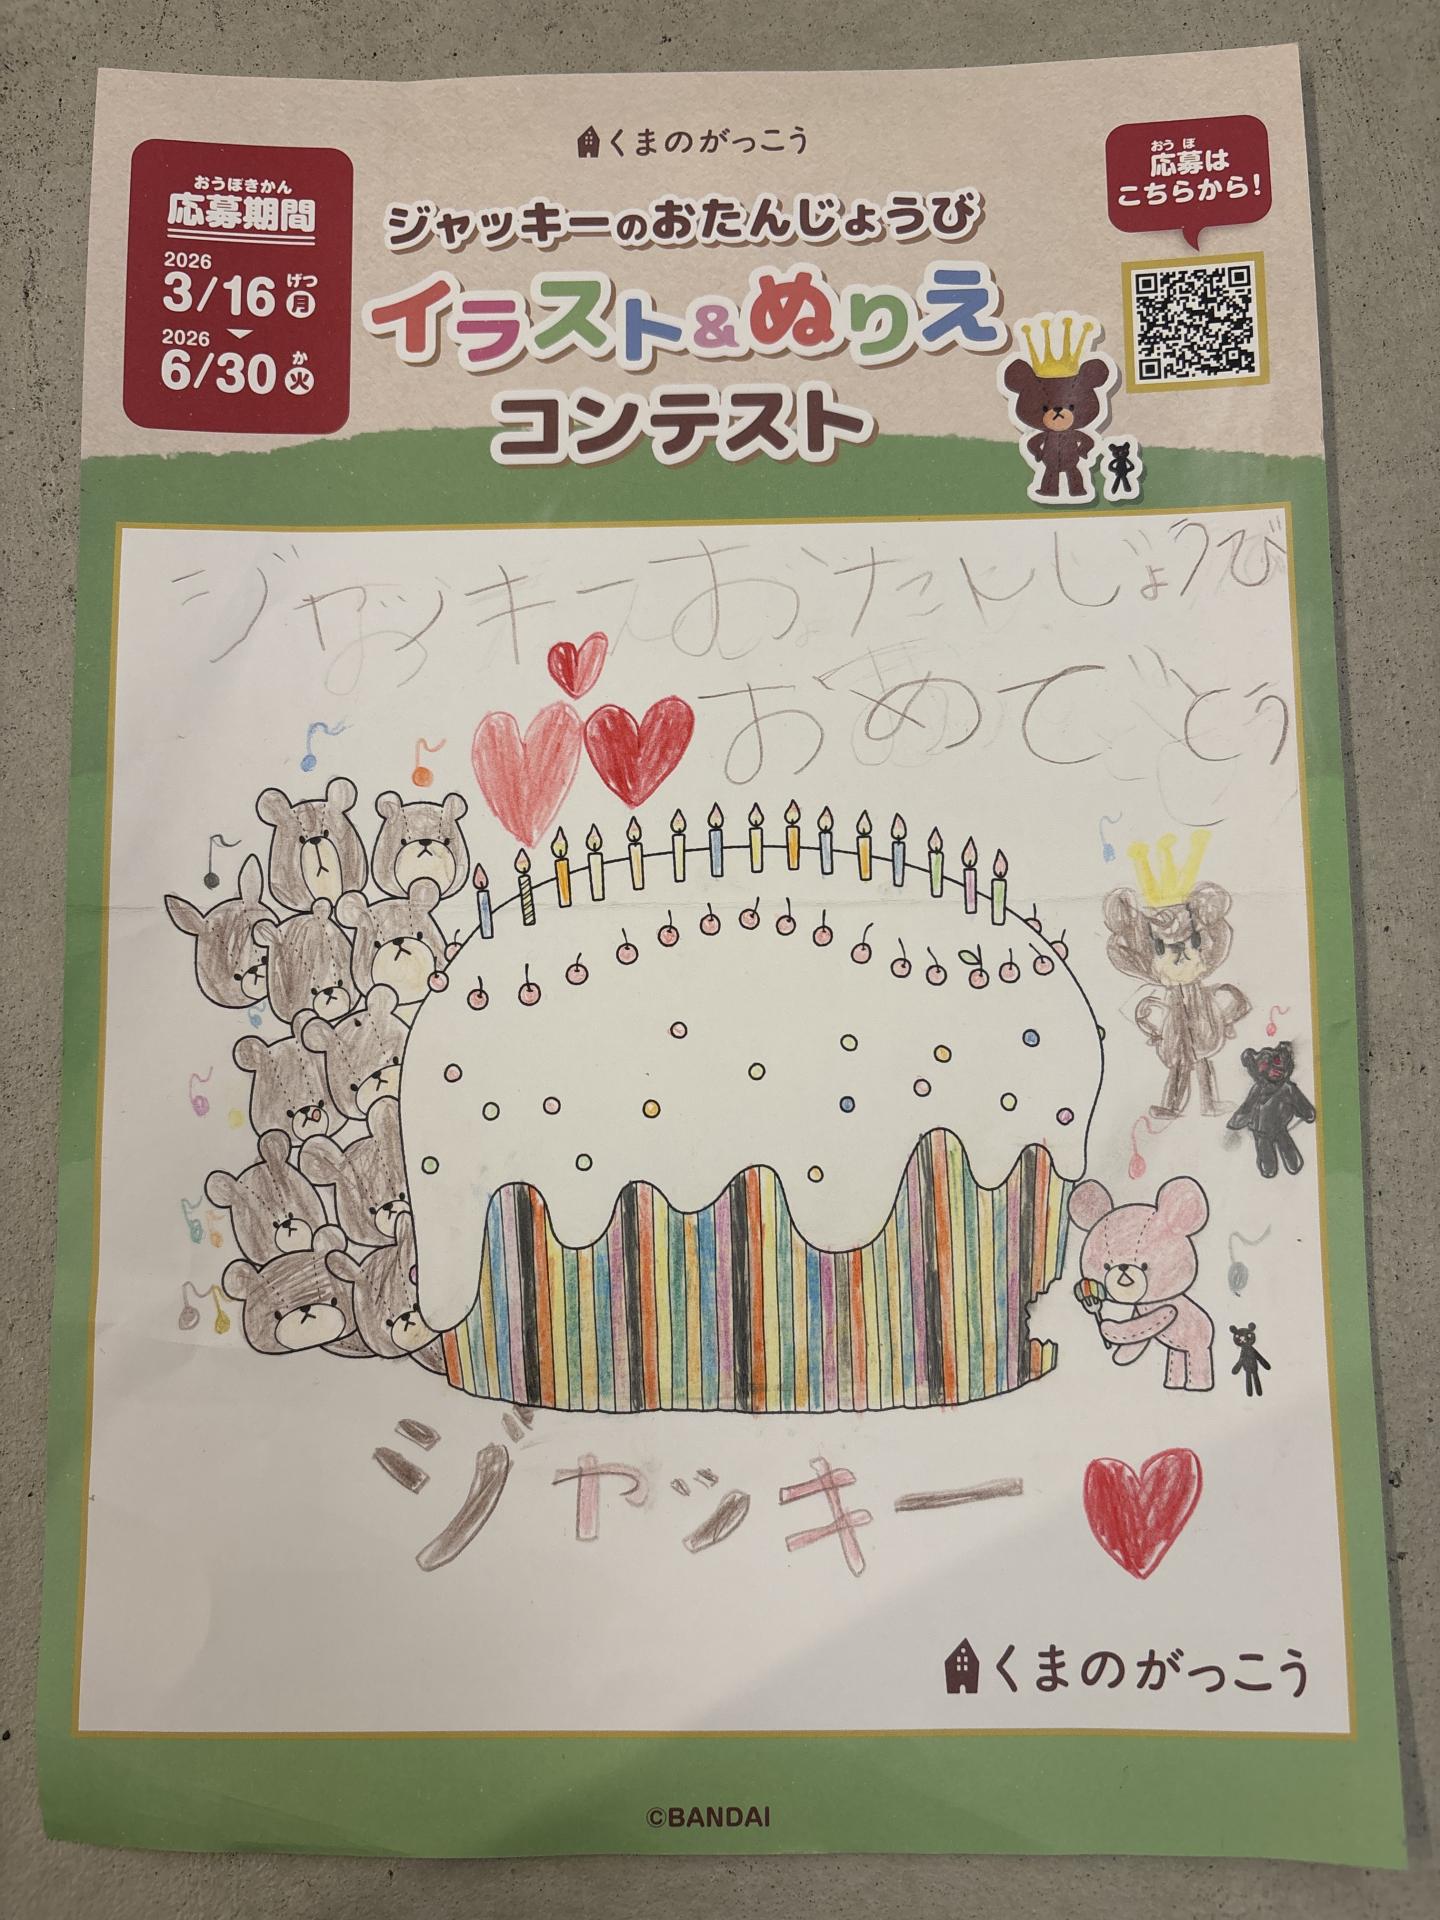 くまのがっこう
おうぼきかん
応募期間
2026
3/16 げつ 月
2026
6/30 か 火
ジャッキーのおたんじょうび
イラスト&ぬりえ
コンテスト
おうぼ
応募は
こちらから!
ジャッキーおたんじょうび
おめでとう
ジャッキー
くまのがっこう
©BANDAI